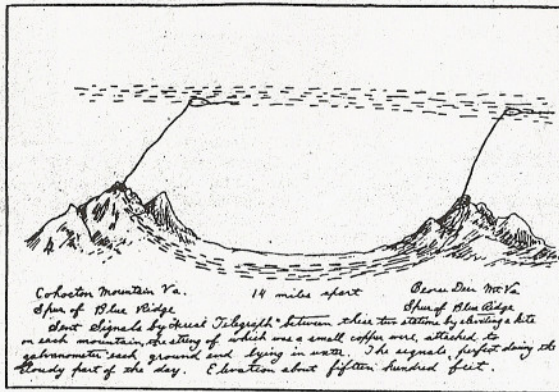 Cohocton Mountain Va. 14 miles apart Beorse Deer Mt Va
Spur of Blue Ridge Spur of Blue Ridge
Sent Signals by "Aerial Telegraph" between these two stations by elevating a kite
on each mountain, the string of which was a small copper wire, attached to
galvanometer each ground end lying in water. The signals, perfect doing the
Cloudy part of the day. Elevation about fifteen hundred feet.